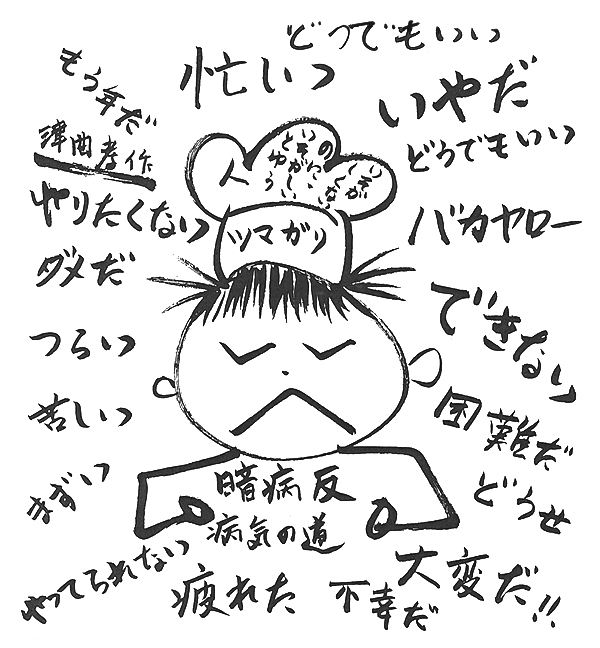 どうでもいい
忙しい
もう年だ
いやだ
津曲孝作
どうでもいい
人
やりたくない
ツマガリ
バカヤロー
ダメだ
できない
つらい
苦しい
困難だ
まずい
暗病反
どうせ
病気の道
やってられない
疲れた
不幸だ
大変だ!!